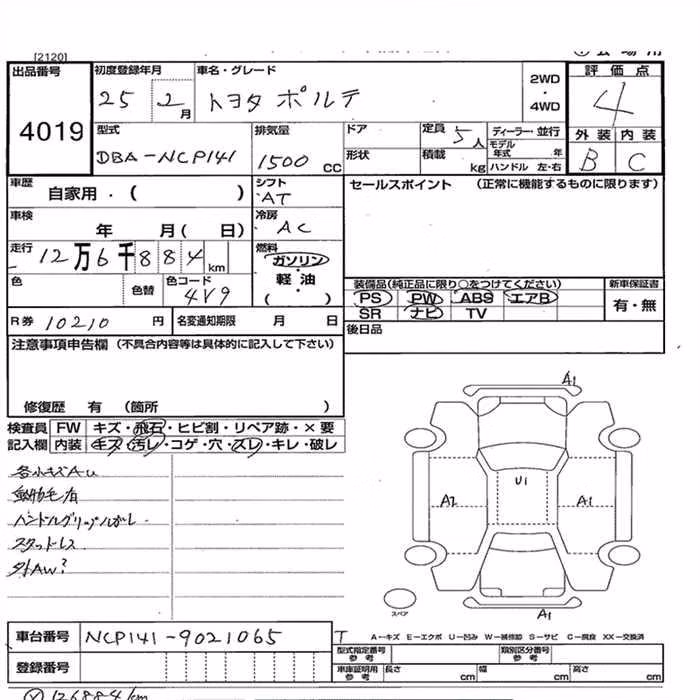 [2120]
出品番号 4019
初度登録年月 25 2月
車名・グレード トヨタ ポルテ
2WD・4WD
評価点 4
型式 DBA-NCP141
排気量 1500 CC
ドア
形状
定員 5人
積載 kg
ディーラー・並行
モデル年式 年
ハンドル 左・右
外装 B
内装 C
車歴 自家用・( )
シフト AT
セールスポイント (正常に機能するものに限ります)
車検 年 月( 日)
冷房 AC
走行 12万6千884km
燃料 ガソリン・軽油・( )
色
色替
色コード 4V9
装備品(純正品に限り○をつけてください)
PS PW ABS エアB
SR ナビ TV
新車保証書 有・無
R券 10210 円
名変通知期限 月 日
後日品
注意事項申告欄 (不具合内容等は具体的に記入して下さい)
修復歴 有 (箇所 )
検査員記入欄
FW キズ・飛石・ヒビ割・リペア跡・×要
内装 キズ・汚レ・コゲ・穴・スレ・キレ・破レ
各小キズAU
ハンドルグリップ
スタッドレス
外AW?
A1
U1
A2
A1
A1
スペア
車台番号 NCP141-9021065
T
A-キズ E-エクボ U-凹み W-補修跡 S-サビ C-腐食 XX-交換済
登録番号
型式指定番号 参考
類別区分番号 参考
車庫証明用 参考 長さ cm 幅 cm 高さ cm
126884km